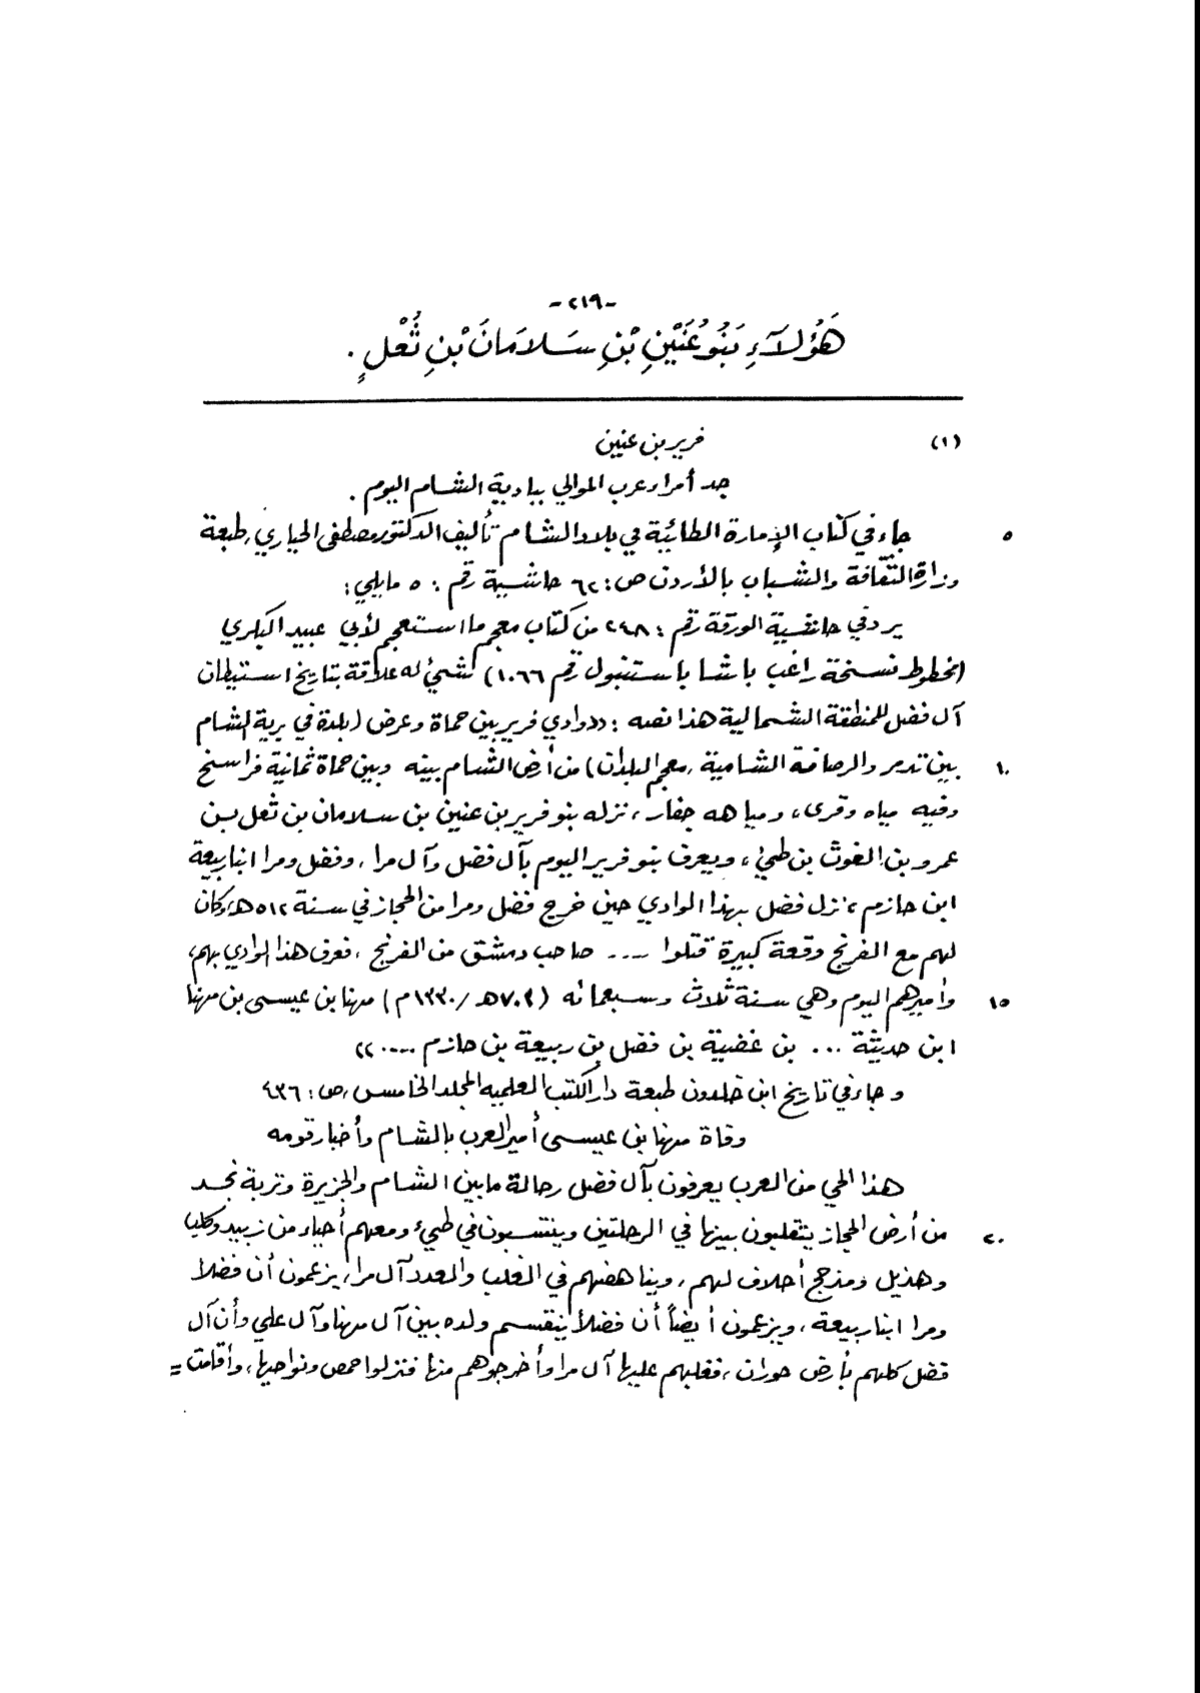 -٢١٩-
هَؤُلَآءِ بَنُو عُنَيْنِ بْنِ سَلَامَانَ بْنِ ثُعْلٍ .
(١) فرير بن عنين
جد أمراء عرب الموالي ببادية الشام اليوم .
٥ جاء في كتاب الإمارة الطائيّة في بلاد الشام تأليف الدكتور مصطفى الحياري، طبعة
وزارة الثّقافة والشباب بالأردن ص: ٦٢ حاشية رقم: ٥ مايلي:
يرد في حاشية الورقة رقم: ٢٤٨ من كتاب معجم ما استعجم لأبي عبيد البكري
(مخطوط نسخة راغب باشا باستنبول رقم ١٠٦٦) شيئ له علاقة بتاريخ استيطان
آل فضل للمنطقة الشمالية هذا نصه: ((وادي فرير بين حماة وعرض (بلدة في برية الشام
١٠ بين تدمر والرصافة الشامية، معجم البلدان) من أرض الشام بينه وبين حماة ثمانية فراسخ
وفيه مياه وقرى، ومياهه جفار، نزله بنو فرير بن عنين بن سلامان بن ثعل بن
عمرو بن الغوث بن طيئ، ويعرف بنو فرير اليوم بآل فضل وآل مرا، وفضل ومرا ابنا ربيعة
ابن حازم، نزل فضل بهذا الوادي حين خرج فضل ومرا من الحجاز في سنة ٥١٢ هـ، وكان
لهم مع الفرنج وقعة كبيرة قتلوا .... صاحب دمشق من الفرنج، فعرف هذا الوادي بهم،
١٥ وأميرهم اليوم وهي سنة ثلاث وسبعمائه (٧٠٣هـ/١٣٣٠م) مهنا بن عيسى بن مهنا
ابن حديثة ... بن غضية بن فضل بن ربيعة بن حازم .....))
وجاء في تاريخ ابن خلدون طبعة دار الكتب العلميه المجلد الخامس، ص: ٤٣٦
وفاة مهنا بن عيسى أمير العرب بالشام وأخبار قومه
هذا الحي من العرب يعرفون بآل فضل رحالة مابين الشام والجزيرة وتربة نجد
٢٠ من أرض الحجاز يتقلبون بينها في الرحلتين وينتسبون في طيئ ومعهم أحياء من زبيد وكلب
وهذيل ومذحج أحلاف لهم، ويناهضهم في الغلب والعدد آل مرا، يزعمون أن فضلا
ومرا ابنا ربيعة، ويزعمون أيضاً أن فضلاً ينقسم ولده بين آل مهنا وآل علي وأن آل
فضل كلهم بأرض حوران، فغلبهم عليها آل مرا وأخرجوهم منها فنزلوا حمص ونواحيها، وأقامت =